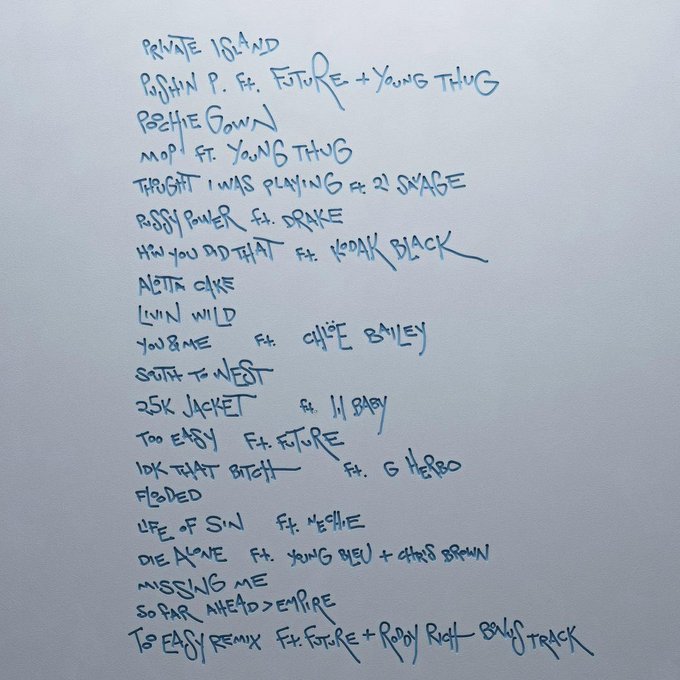 PRIVATE ISLAND
PUSHIN P. Ft. FUTURE + YOUNG THUG
POOCHIE GOWN
MOP Ft. YOUNG THUG
THOUGHT I WAS PLAYING Ft. 21 SAVAGE
PUSSY POWER Ft. DRAKE
HOW YOU DID THAT Ft. KODAK BLACK
ALOTTA CAKE
LIVIN WILD
YOU & ME Ft. CHLÖE BAILEY
SOUTH TO WEST
25K JACKET Ft. Lil BABY
TOO EASY Ft. FUTURE
IDK THAT BITCH Ft. G HERBO
FLOODED
LIFE OF SIN Ft. NECHIE
DIE ALONE Ft. YOUNG BLEU + CHRIS BROWN
MISSING ME
SO FAR AHEAD > EMPIRE
TOO EASY REMIX Ft. FUTURE + RODDY RICH BONUS TRACK